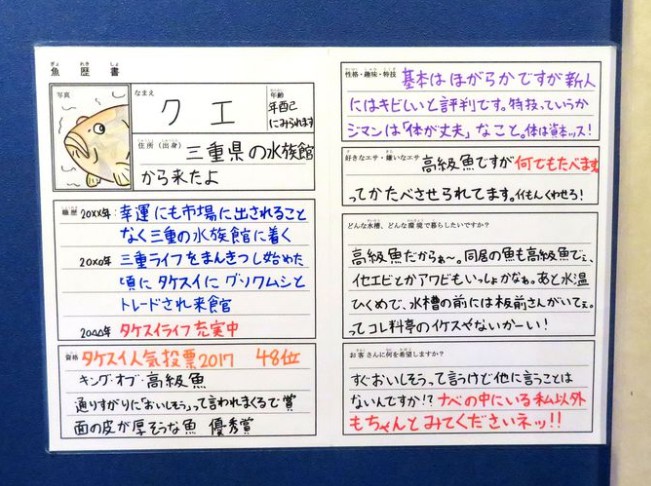 魚歴書
写真
なまえ
クエ
年齢
年配に
みられます
住所（出身）三重県の水族館
から来たよ
職歴 20XX年：幸運にも市場に出されること
なく三重の水族館に着く
20X0年 三重ライフをまんきつし始めた
頃にタケスイにグソクムシと
トレードされ来館
20△△年 タケスイライフ充実中
資格 タケスイ人気投票2017 48位
キング・オブ・高級魚
通りすがりに「おいしそう」って言われまくるで賞
面の皮が厚そうな魚 優秀賞
性格・趣味・特技 基本はほがらかですが新人
にはキビしいと評判です。特技っていうか
ジマンは「体が丈夫」なこと。体は資本ッス！
好きなエサ・嫌いなエサ 高級魚ですが何でもたべます
ってかたべさせられてます。イイもんくわせろ！
どんな水槽、どんな環境で暮らしたいですか？
高級魚だからぁ〜。同居の魚も高級魚でぇ、
イセエビとかアワビもいっしょかなぁ。あと水温
ひくめで、水槽の前には板前さんがいてぇ。
ってコレ料亭のイケスやないかーい！
お客さんに何を希望しますか？
すぐおいしそうって言うけど他に言うことは
ないんですか!?ナベの中にいる私以外
もちゃんとみてくださいネッ!!